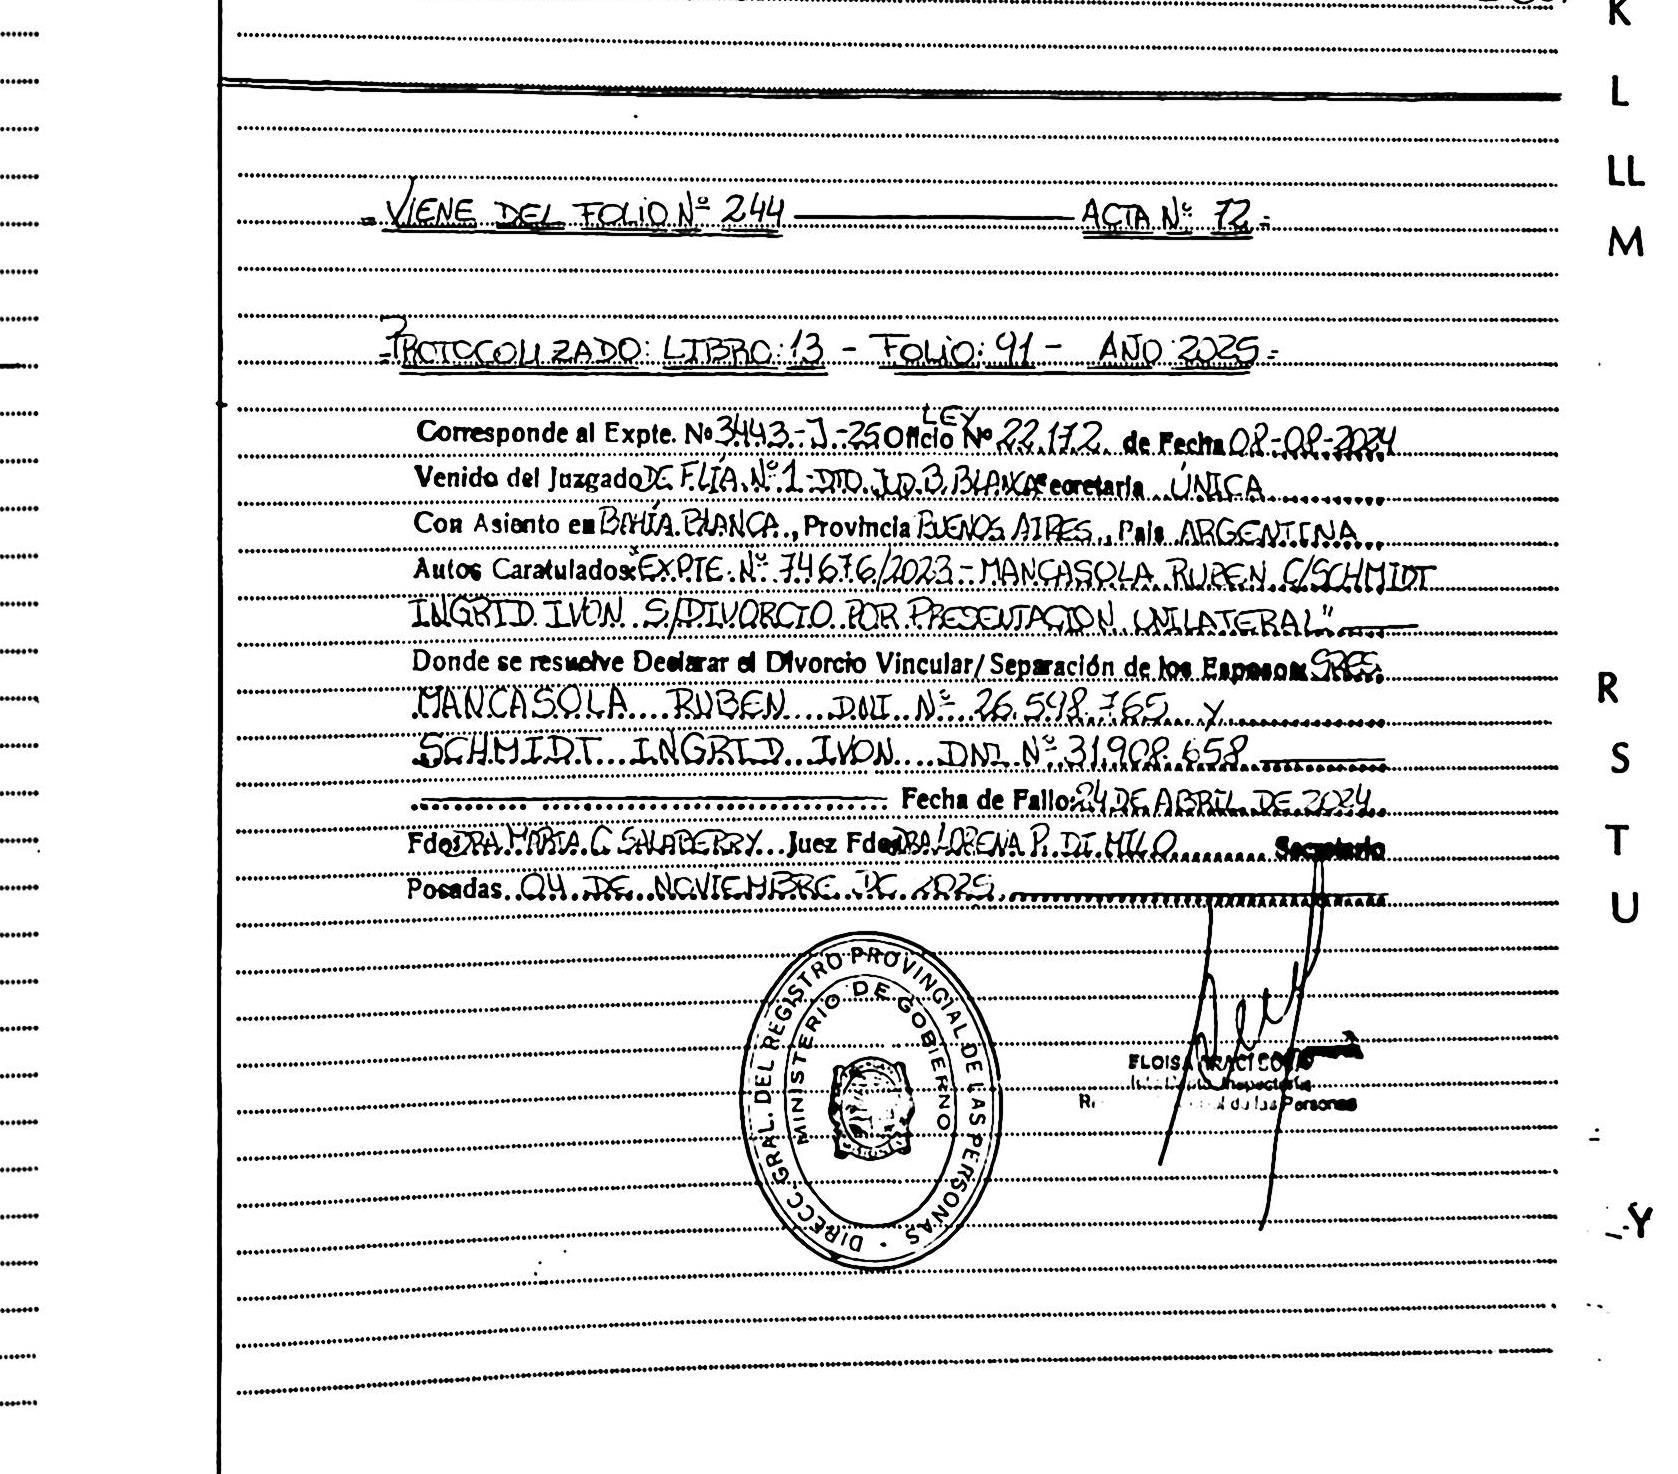 K
L
LL
M
= VIENE DEL FOLIO Nº 244 ——— ACTA Nº 72 =
= PROTOCOLIZADO: LIBRO: 13 - FOLIO: 91 - AÑO 2025 =
LEY
Corresponde al Expte. Nº 3443-J-25 Oficio Nº 22.172 de Fecha 08-08-2024
Venido del Juzgado DE FLÍA. Nº 1-DTO. JUD. B. BLANCA Secretaría ÚNICA
Con Asiento en BAHÍA BLANCA, Provincia BUENOS AIRES, País ARGENTINA
Autos Caratulados: "EXPTE. Nº 74676/2023 - MANCASOLA RUBEN C/SCHMIDT
INGRID IVON S/DIVORCIO POR PRESENTACION UNILATERAL"
Donde se resuelve Declarar el Divorcio Vincular/Separación de los Esposos: SRES.
MANCASOLA RUBEN DNI Nº 26.598.765 y
SCHMIDT INGRID IVON DNI Nº 31.908.658
Fecha de Fallo: 24 DE ABRIL DE 2024
Fdo: DRA MARIA C. SALABERRY Juez Fdo: DRA LORENA P. DI MILO Secretario
Posadas 04 DE NOVIEMBRE DE 2025
R
S
T
U
Y
DIRECC. GRAL. DEL REGISTRO PROVINCIAL DE LAS PERSONAS
MINISTERIO DE GOBIERNO
ELOISA
de las Personas